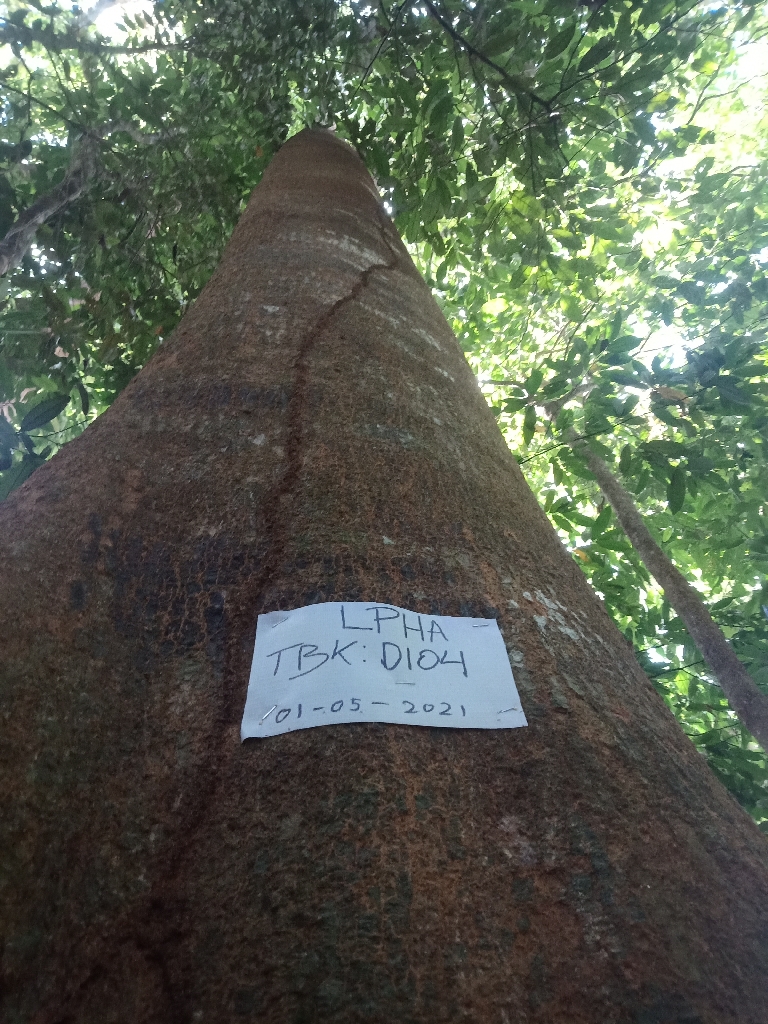 LPHA
TBK: D104
01-05-2021